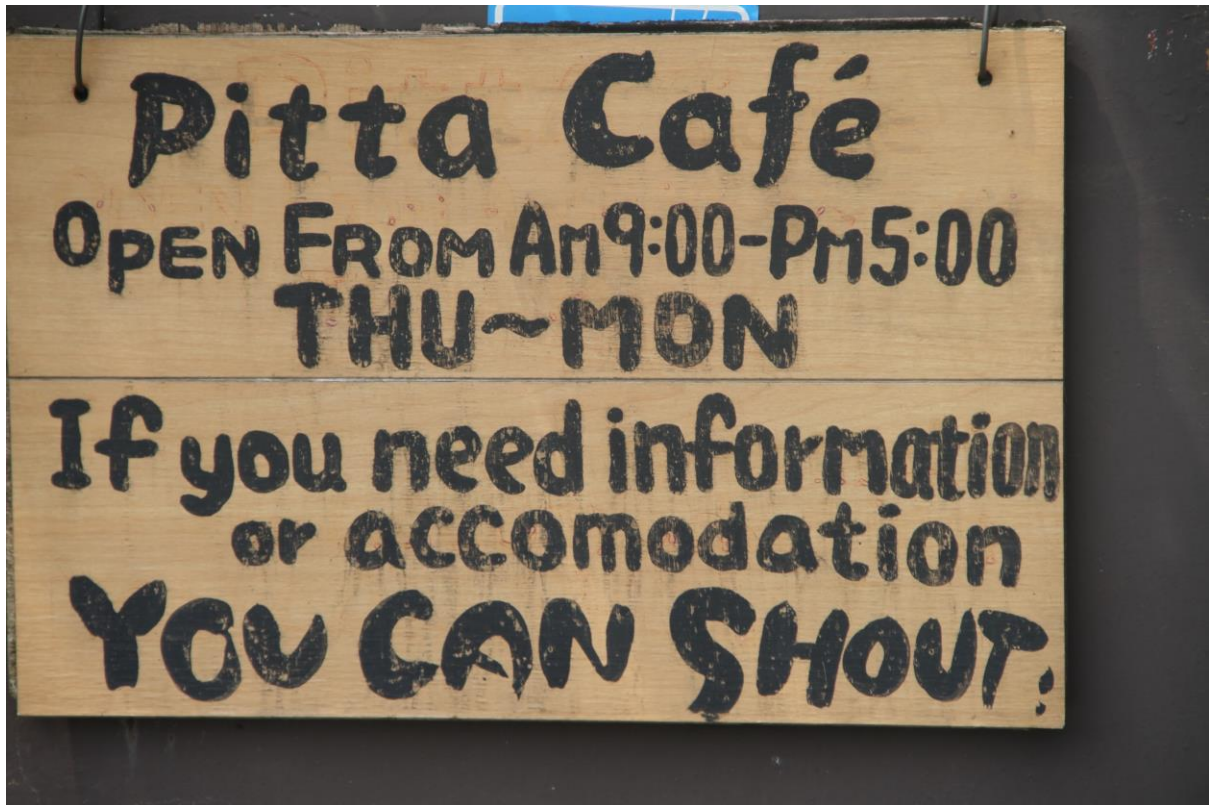 Pitta Café
OPEN FROM Am9:00-Pm5:00
THU~MON
If you need information
or accomodation
YOU CAN SHOUT: